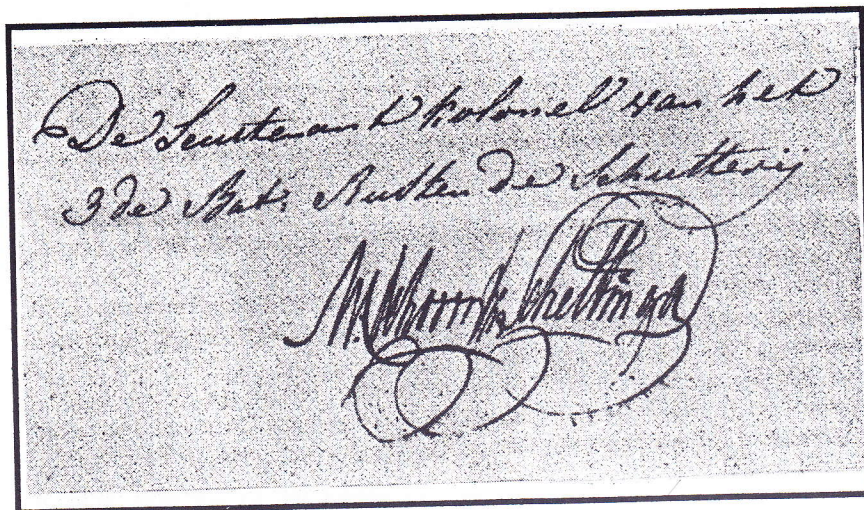 De Luitenant Kolonel van het
3de Bat: Rustende Schutterij
Scheltinga